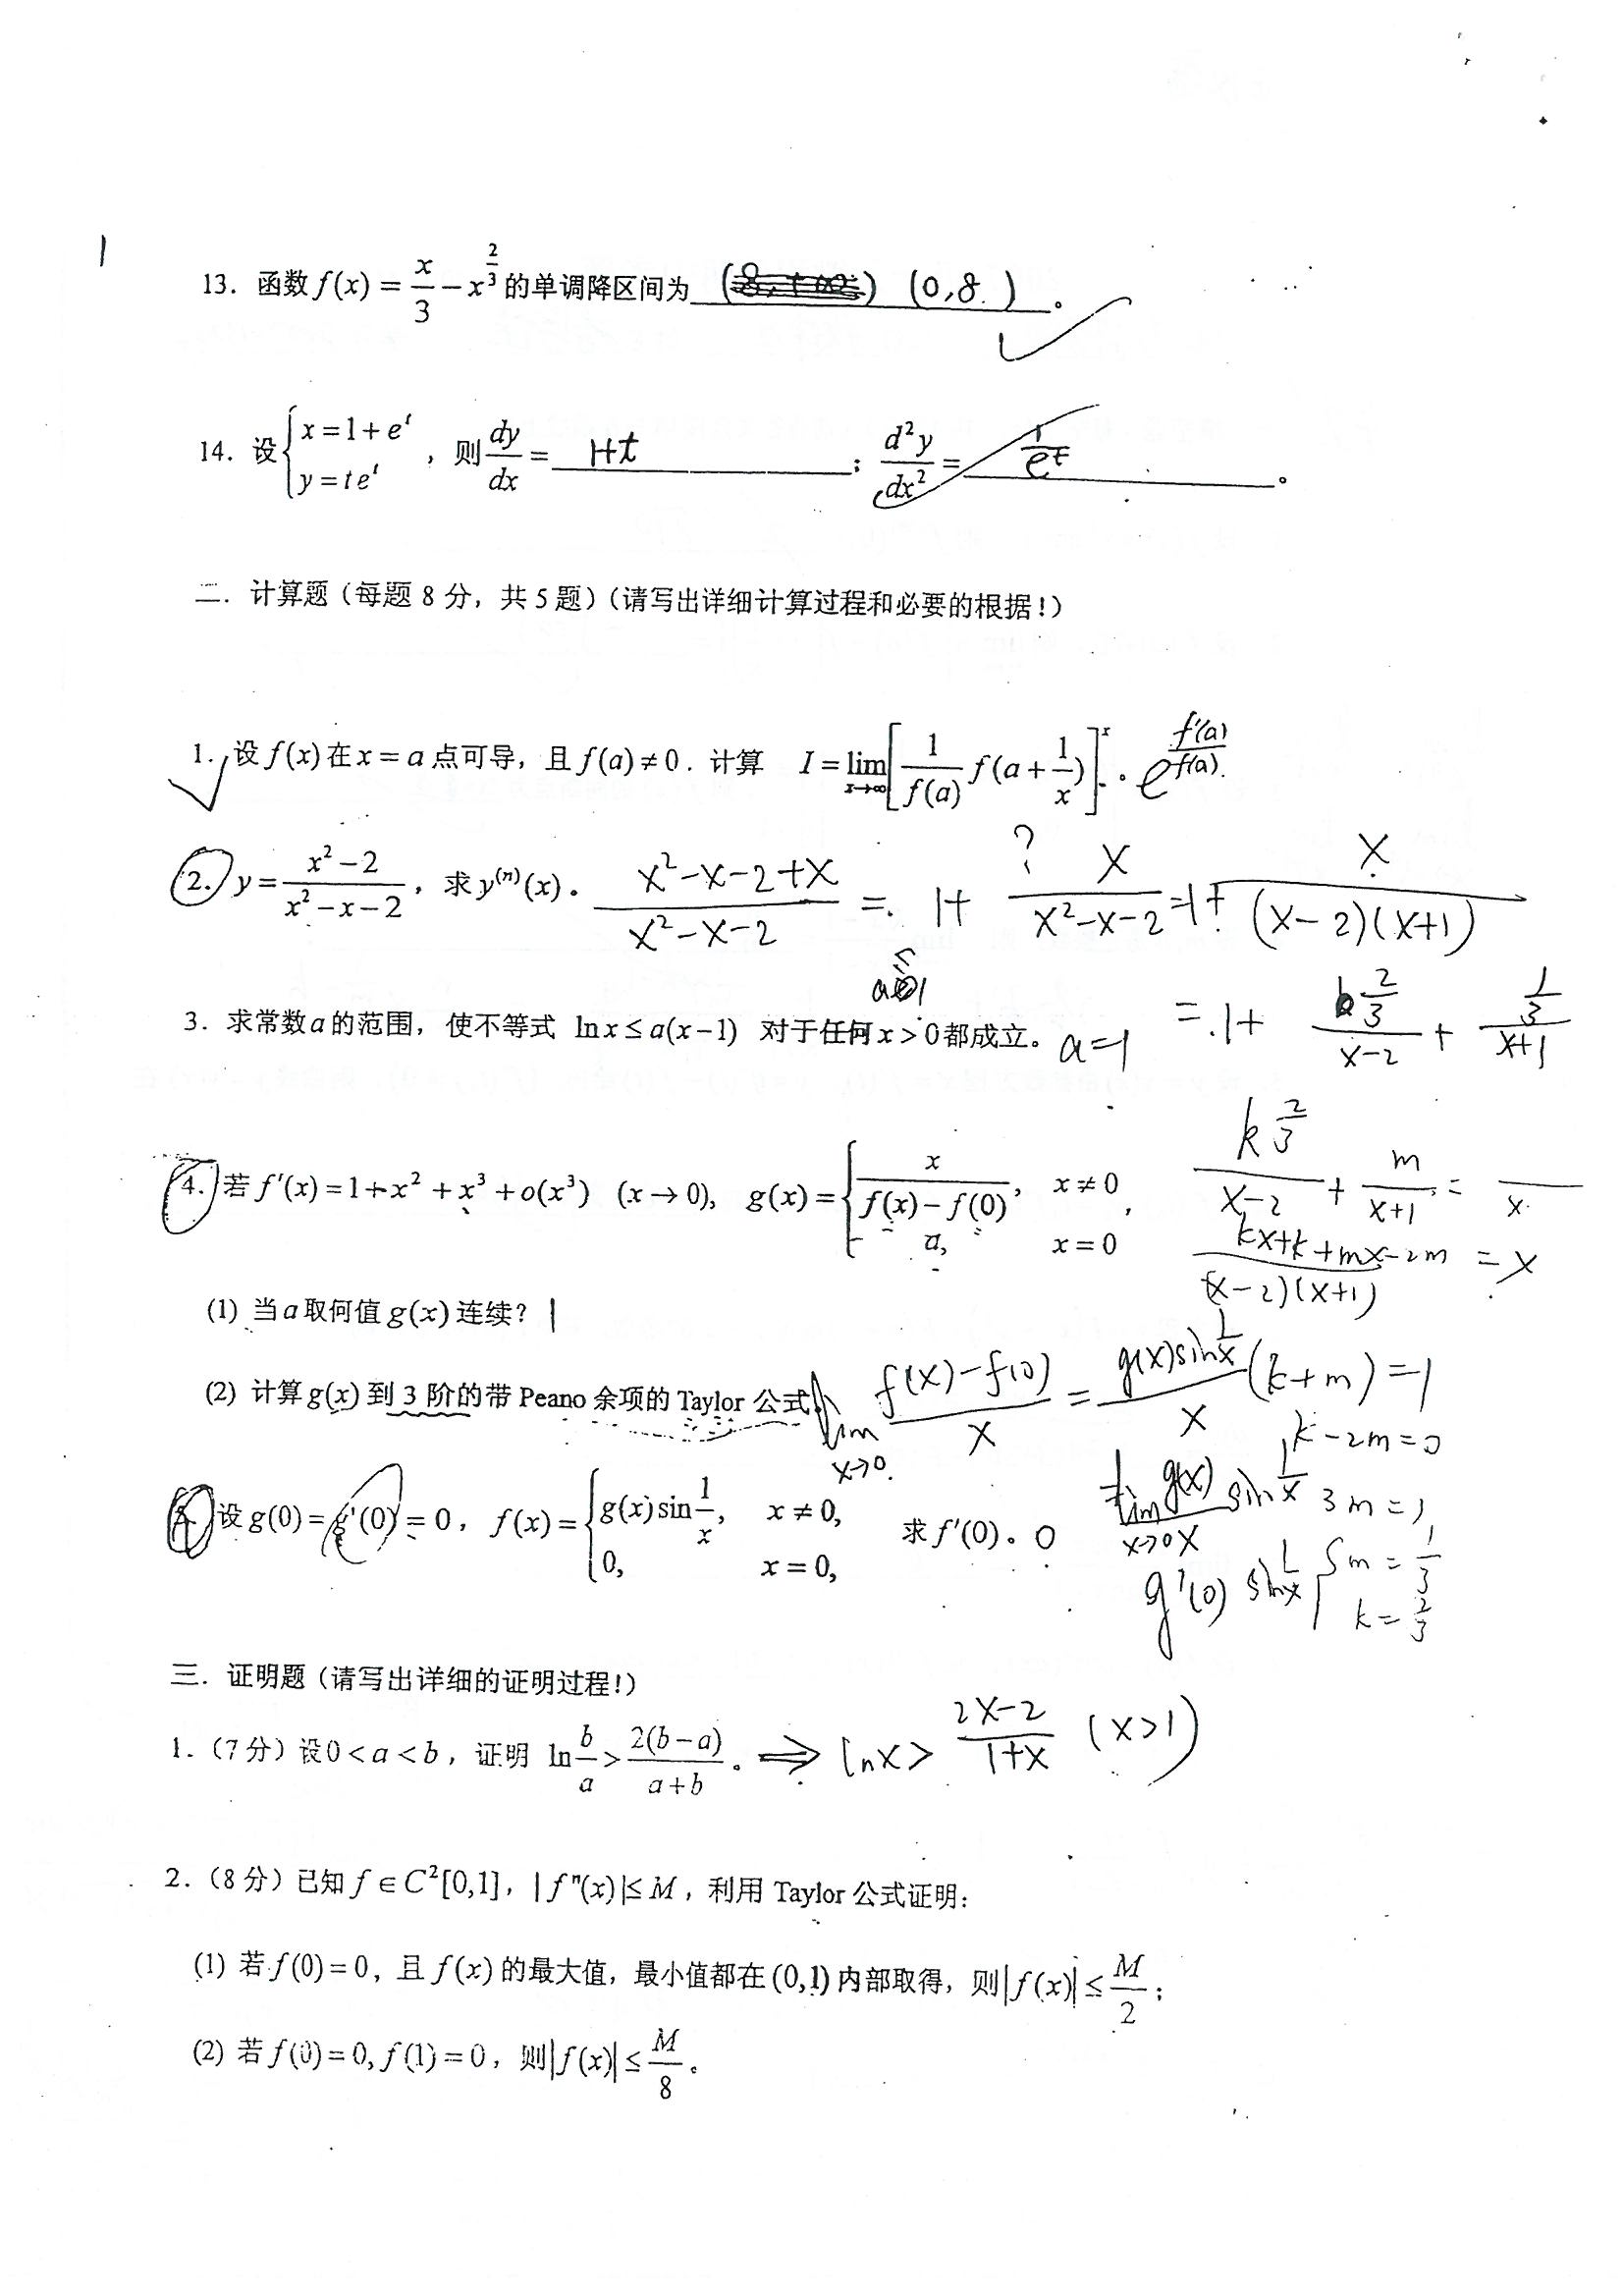 13. 函数 f(x) = x/3 − x^{2/3} 的单调降区间为 (8, +∞) (0,8) 。
14. 设 { x = 1 + e^t , y = te^t , 则 dy/dx = 1+t ; d²y/dx² = 1/e^t 。
二. 计算题（每题 8 分，共 5 题）（请写出详细计算过程和必要的根据!）
1. 设 f(x) 在 x = a 点可导，且 f(a) ≠ 0. 计算 I = lim_{x→∞} [ 1/f(a) f(a + 1/x) ]^x . e^{f'(a)/f(a)}
2. y = (x² − 2)/(x² − x − 2) ，求 y^{(n)}(x) 。 (x²−x−2+x)/(x²−x−2) = 1+ x/(x²−x−2) = 1+ x/((x−2)(x+1))
?
3. 求常数 a 的范围，使不等式 ln x ≤ a(x−1) 对于任何 x > 0 都成立。 a=1
= 1+ (2/3)/(x−2) + (1/3)/(x+1)
4. 若 f'(x) = 1 + x² + x³ + o(x³) (x → 0), g(x) = { x/(f(x) − f(0)), x ≠ 0 , a, x = 0
k 2/3
k/(x−2) + m/(x+1) =
(kx+k+mx−2m)/((x−2)(x+1)) = x
(1) 当 a 取何值 g(x) 连续? 1
(2) 计算 g(x) 到 3 阶的带 Peano 余项的 Taylor 公式
lim_{x→0} (f(x)−f(0))/x = g(x) sin 1/x / x
(k+m)=1
k−2m=0
5. 设 g(0) = g'(0) = 0 , f(x) = { g(x) sin 1/x, x ≠ 0, 0, x = 0, 求 f'(0) 。 0
lim_{x→0} g(x)/x sin 1/x
3m=1
g'(0) sin 1/x
m = 1/3
k = 2/3
三. 证明题（请写出详细的证明过程!）
1.（7 分）设 0 < a < b ，证明 ln b/a > 2(b−a)/(a+b) 。 ⇒ lnx > (2x−2)/(1+x) (x>1)
2.（8 分）已知 f ∈ C²[0,1] , |f″(x)| ≤ M ，利用 Taylor 公式证明:
(1) 若 f(0) = 0, 且 f(x) 的最大值，最小值都在 (0,1) 内部取得，则 |f(x)| ≤ M/2 ;
(2) 若 f(0) = 0, f(1) = 0 ，则 |f(x)| ≤ M/8 。